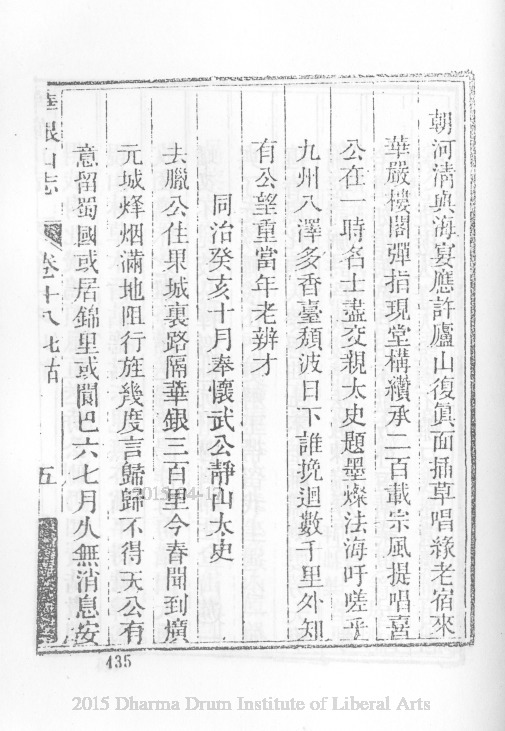 朝河清與海宴應許廬山復眞面插草唱緣老宿來
華嚴樓閣彈指現堂構纘承二百載宗風提唱喜
公在一時名士盡交親太史題墨燦法海吁嗟乎
九州八澤多香臺頽波日下誰挽迴數千里外知
有公望重當年老辨才
同治癸亥十月奉懷武公靜山太史
去臘公住果城裏路隔華銀三百里今春聞到廣
元城烽烟滿地阻行旌幾度言歸歸不得天公有
意留蜀國或居錦里或閬巴六七月久無消息安
華銀山志
卷十八七古
五
435
2015 Dharma Drum Institute of Liberal Arts